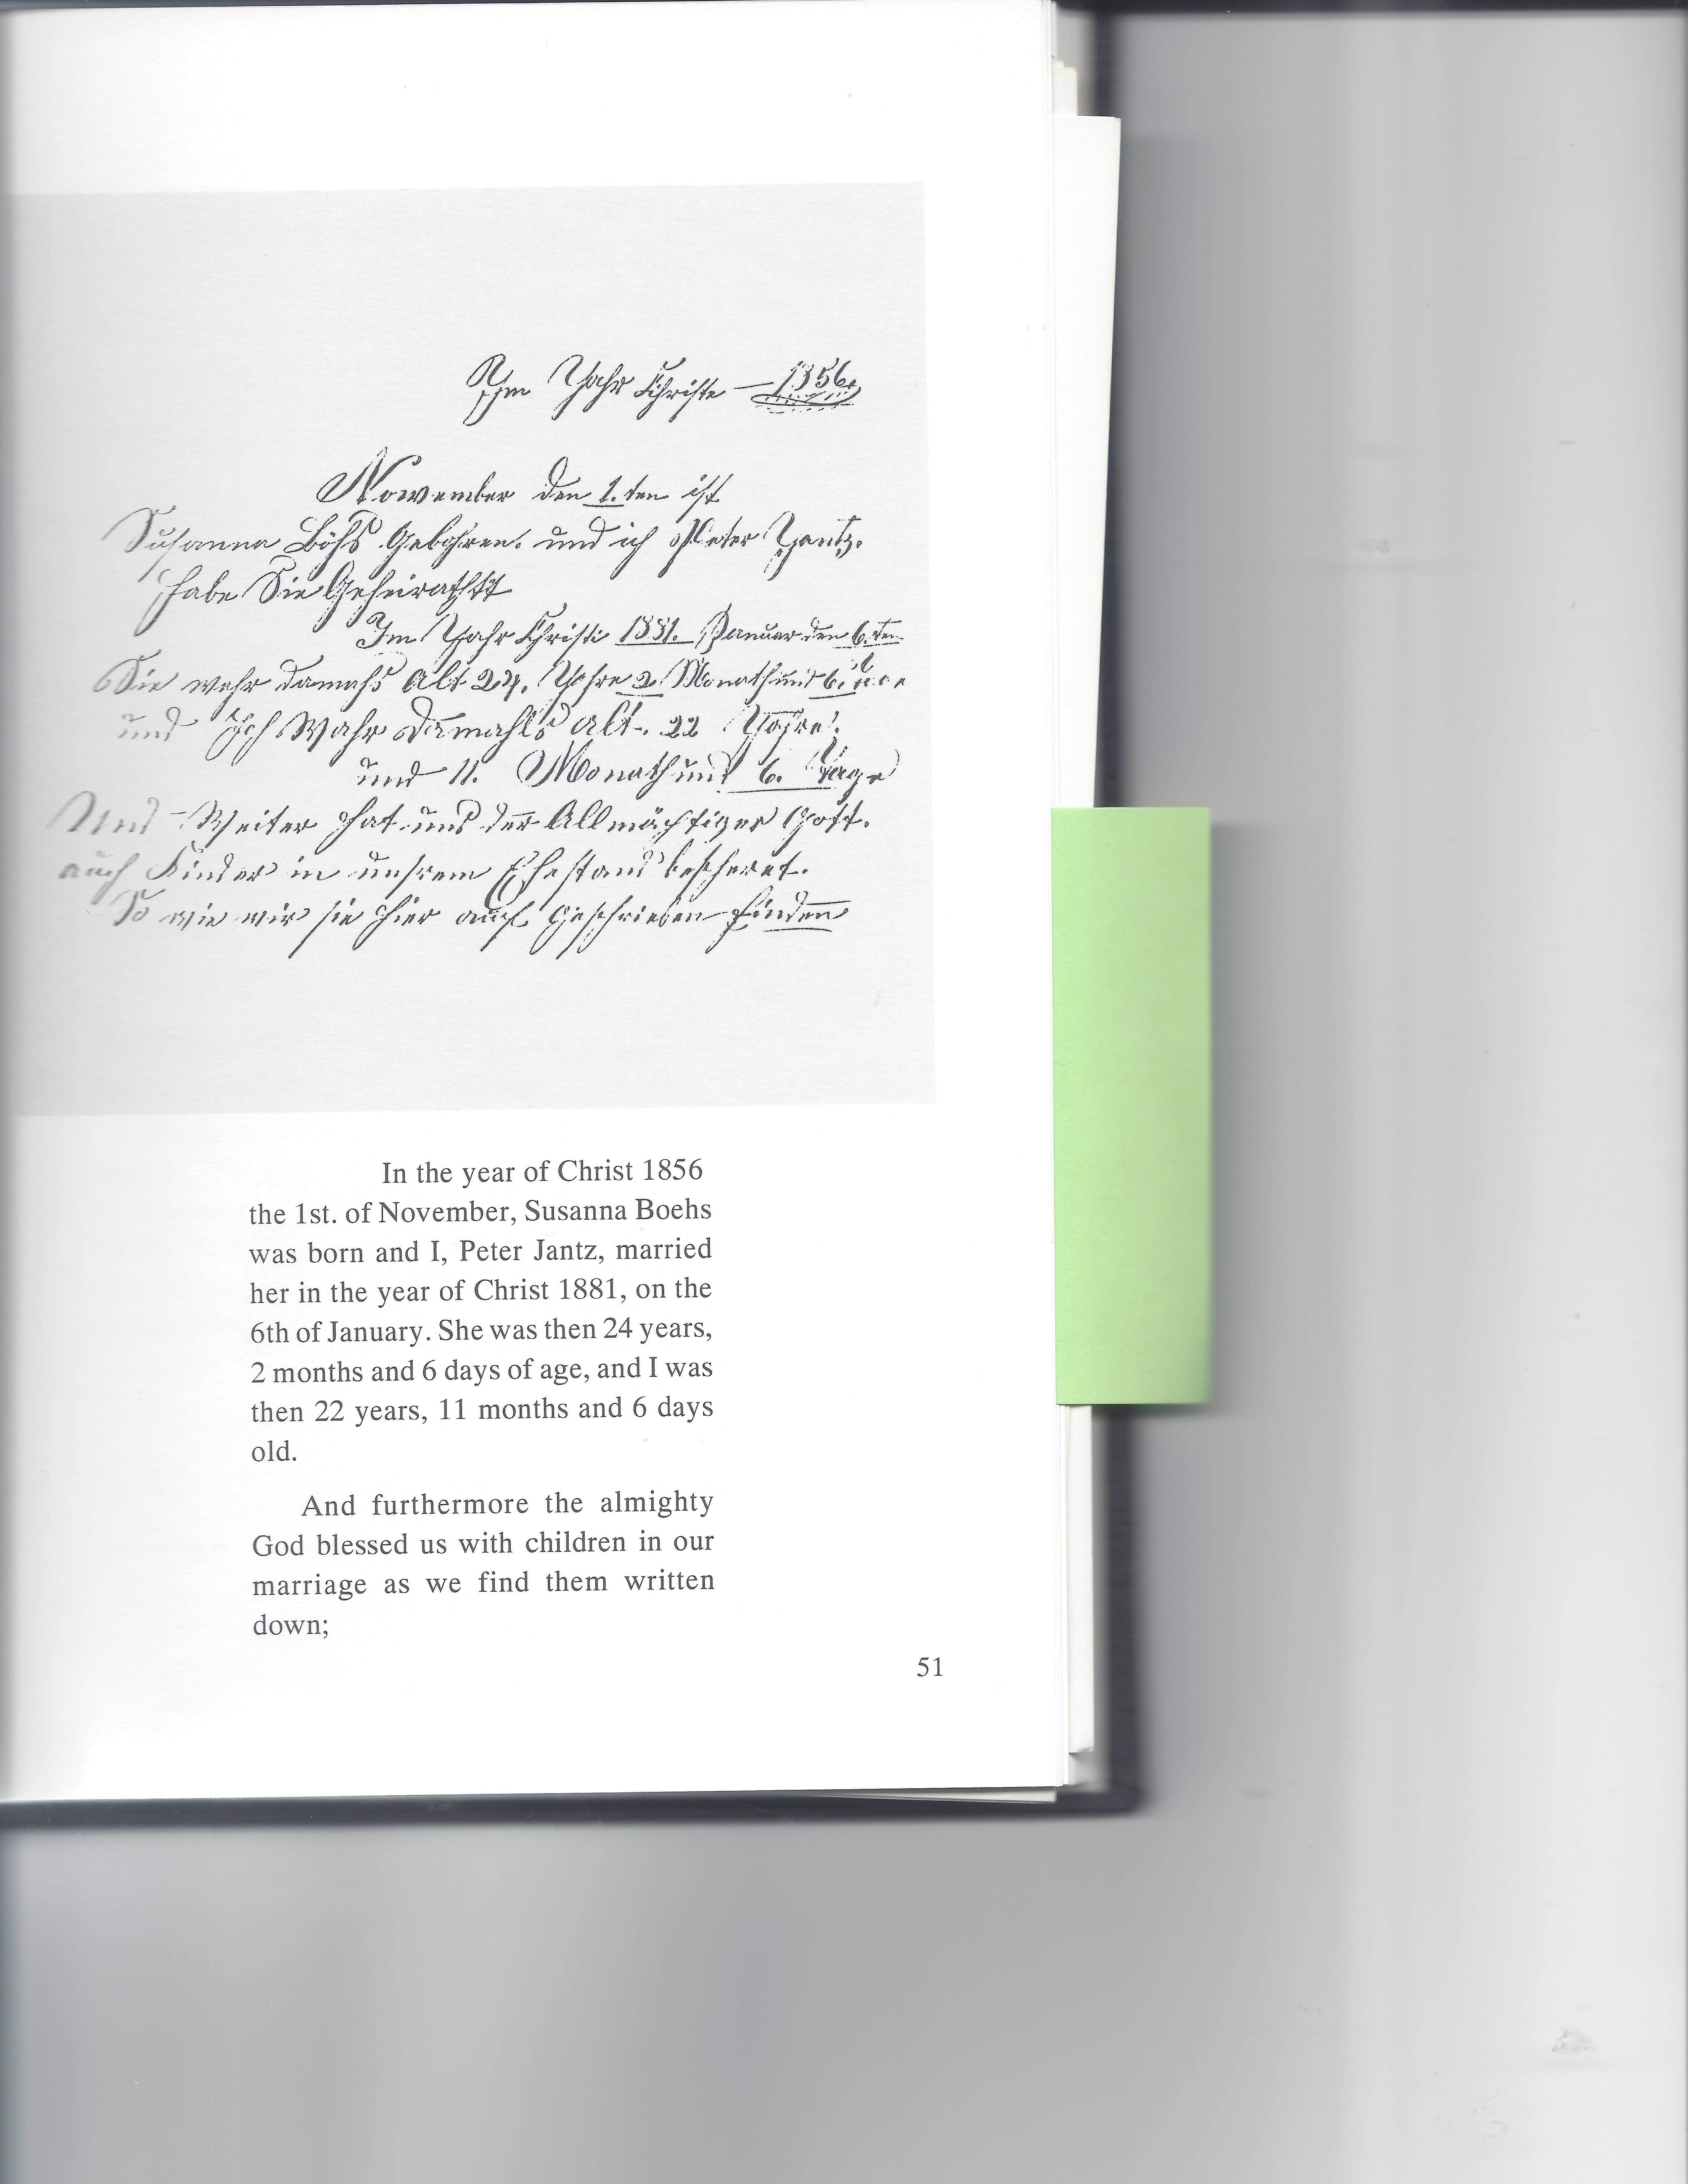 Im Jahr Christe — 1856.
November den 1. ten ist
Susanna Böhs Gebohren. und ich Peter Jantz.
habe Sie Geheirathet
Im Jahr Christi 1881. Januar den 6. ten
Sie wahr damahs Alt 24. Jahre 2 Monath und 6.
und Ich Wahr Damahls alt. 22 Jahre.
und 11. Monath und 6. Tage
Und Weiter hat uns der Allmächtiger Gott.
auch Kinder in unsrem Ehestand bescheret.
So wie wir sie hier auch Geschrieben finden
In the year of Christ 1856
the 1st. of November, Susanna Boehs
was born and I, Peter Jantz, married
her in the year of Christ 1881, on the
6th of January. She was then 24 years,
2 months and 6 days of age, and I was
then 22 years, 11 months and 6 days
old.
And furthermore the almighty
God blessed us with children in our
marriage as we find them written
down;
51